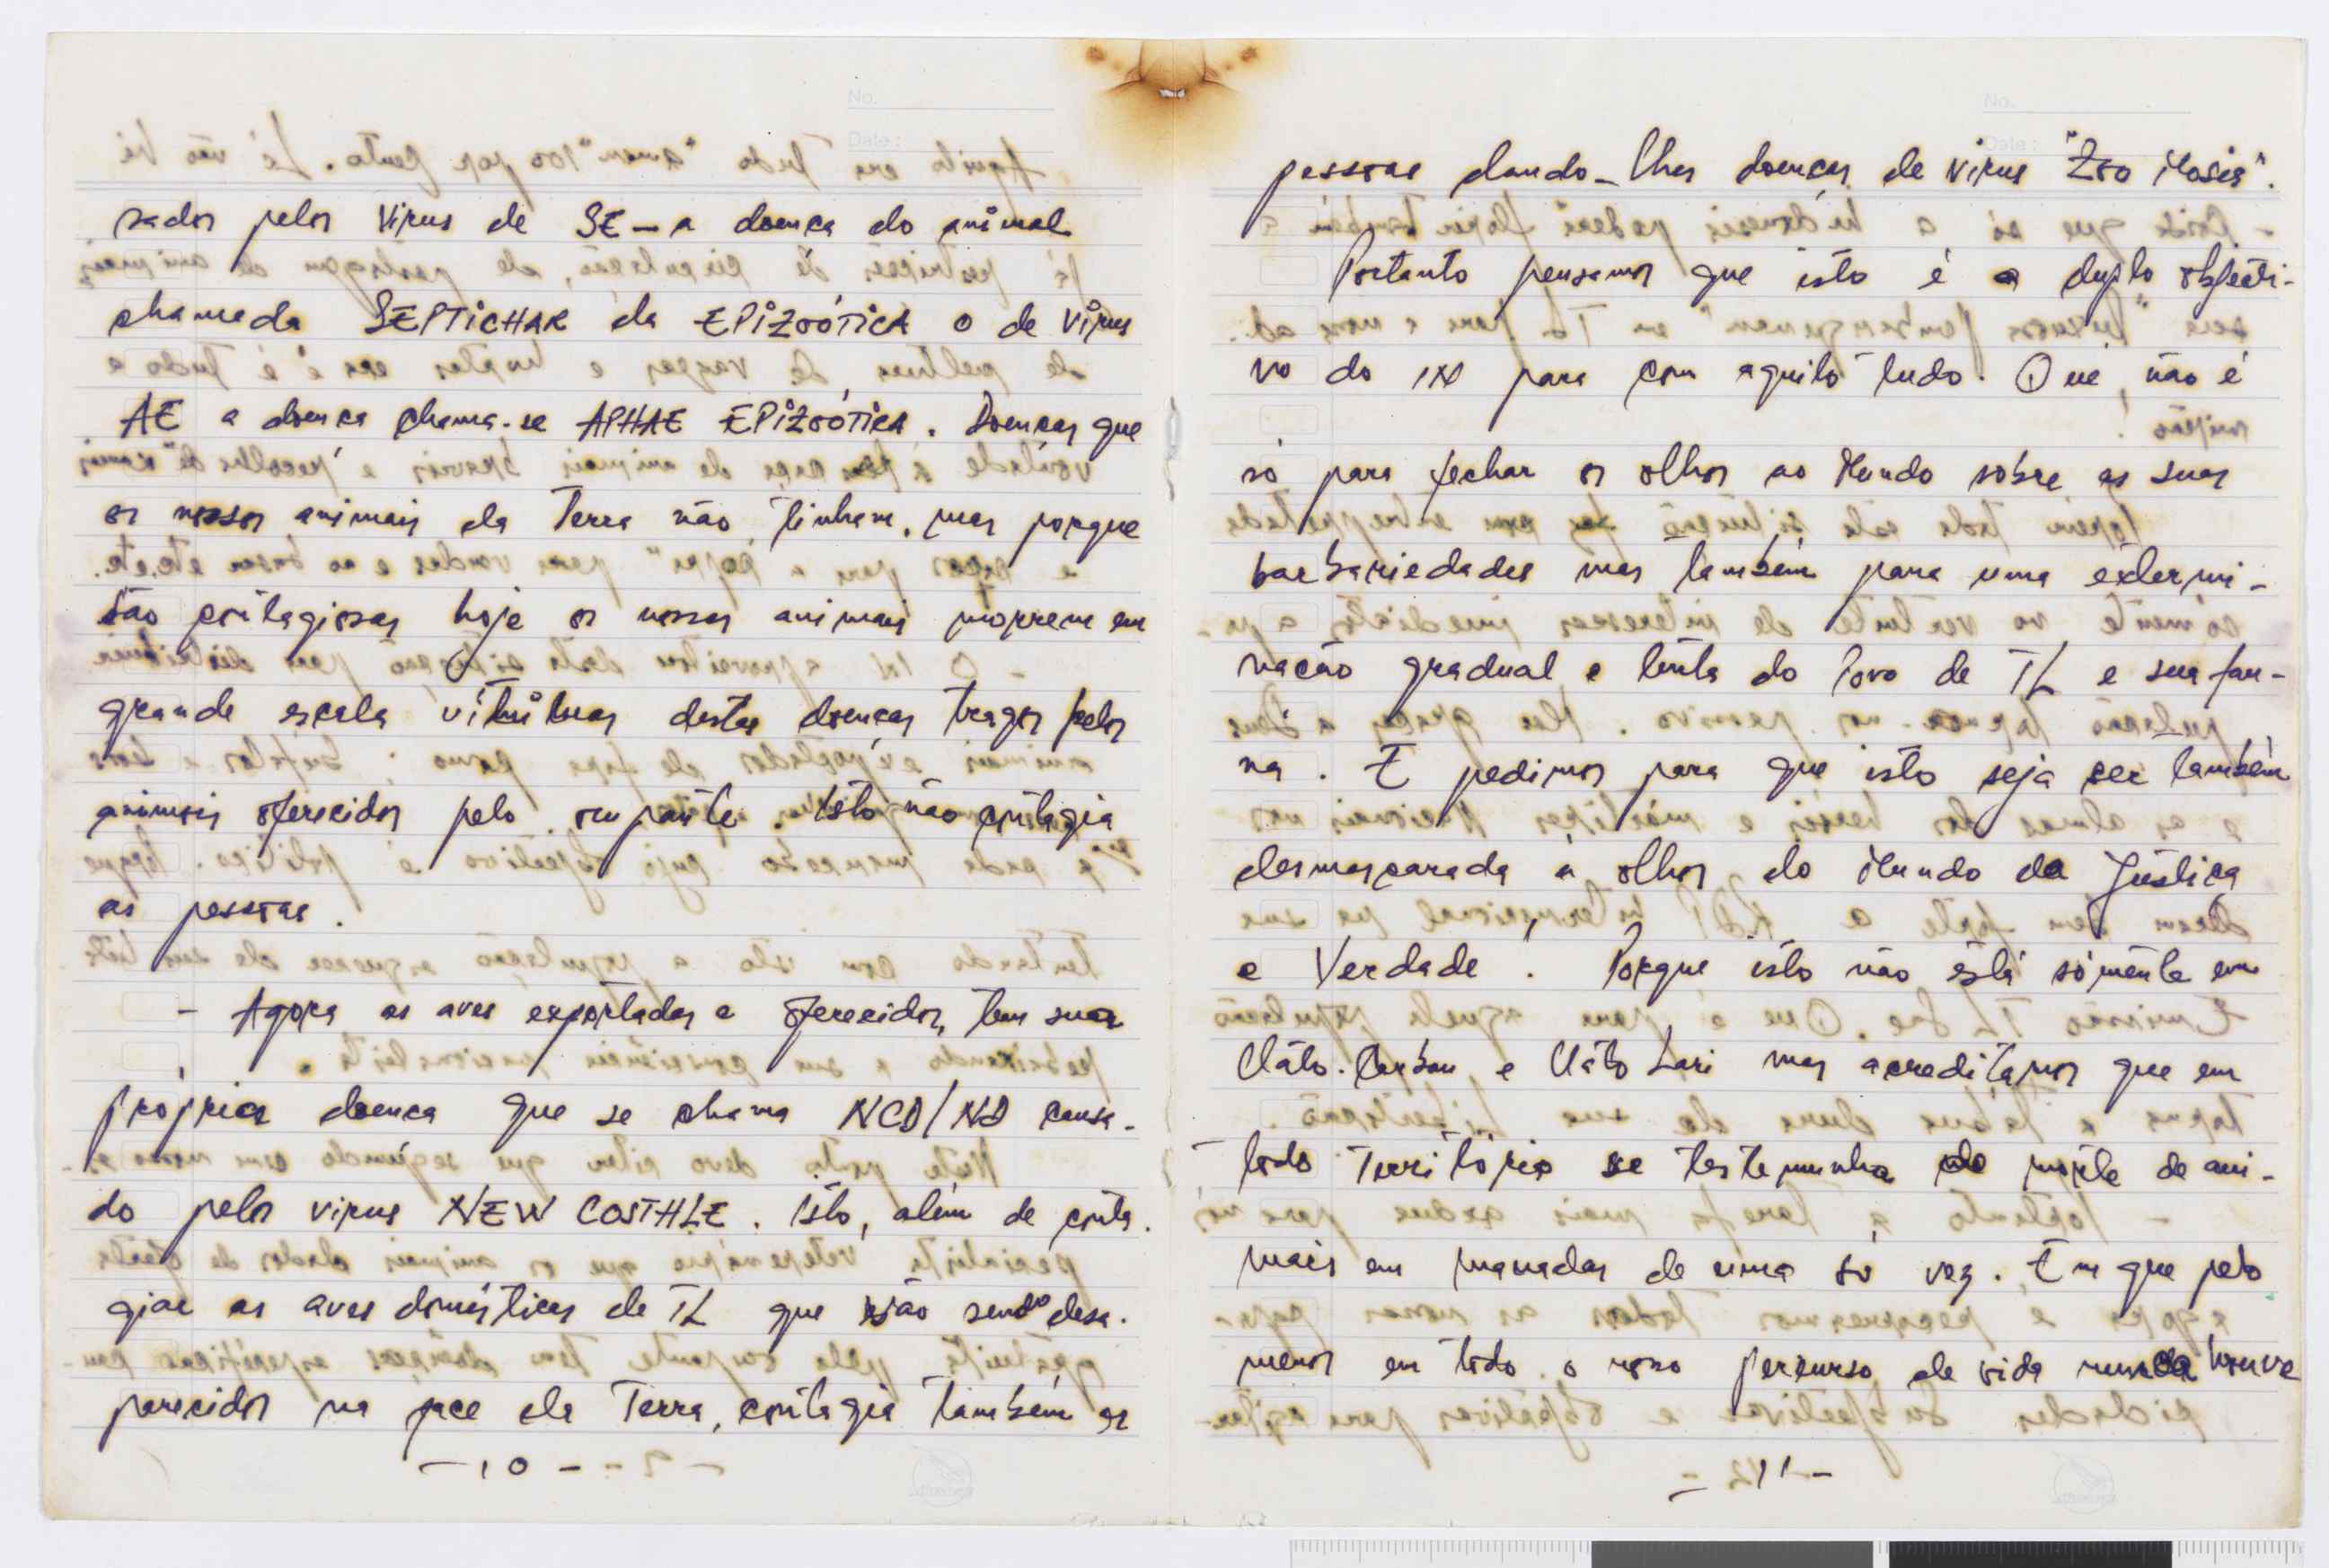 No.
Date:
sados pelos virus de SE – a doença do animal
chamada SEPTICHAR da EPIZOÓTICA o de virus
AE a doença chama-se APHAE EPIZOÓTICA. Doenças que
os nossos animais da Terra não tinham, mas porque
são contagiosas hoje os nossos animais morrem em
grande escala destas doenças tragos pelos
animais oferecidos pelo ocupante. Isto não contagia
as pessoas.
- Agora as aves exportadas e oferecidos, tem suas
próprias doença que se chama NCD/ND causa-
do pelos virus NEW COSTHLE. Isto, além de conta-
giar as aves domésticas de TL que são sendo desa-
parecidos na face da Terra, contagia também as
- 10 -
No.
Date:
pessoas dando-lhes doenças de virus "Zoo Mosis".
Portanto pensamos que isto é a duplo objecti-
vo do IN para com aquilo tudo. Que, não é
só para fechar os olhos ao Mundo sobre as suas
barbariedades mas também para uma extermi-
nação gradual e lenta do Povo de TL e sua fau-
na. E pedimos para que isto seja ser também
desmascarada à olhos do Mundo da Justiça
e Verdade! Porque isto não está sómente em
e Uáto Lari mas acreditamos que em
todo Território se testemunha morte de ani-
mais em manadas de uma só vez. Em que pelo
menos em todo o nosso percurso de vida nunca houve
- 11 -